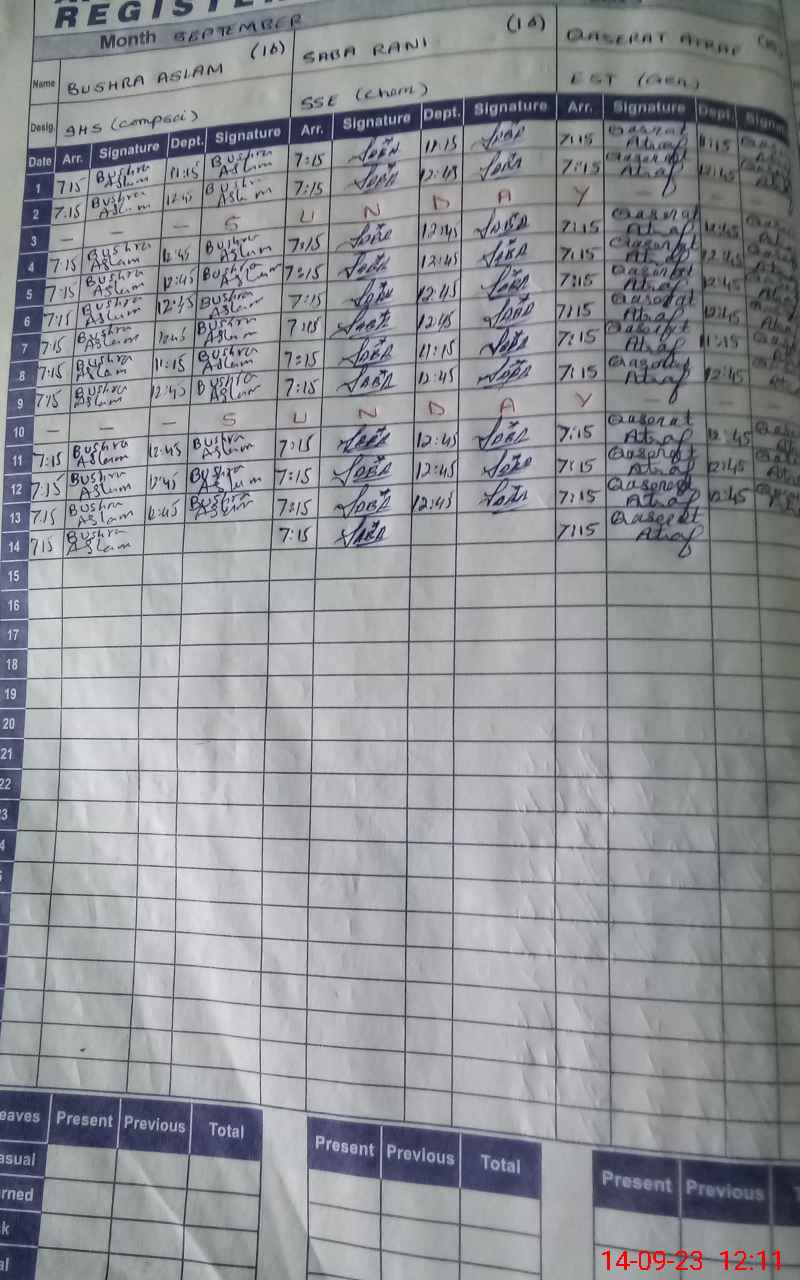 REGISTE
Month SEPTEMBER
Name BUSHRA ASLAM (16) SABA RANI (16) QASERAT ATRAF
Desig. SHS (compsci) SSE (chem) EST (Gen)
Date Arr. Signature Dept. Signature Arr. Signature Dept. Signature Arr. Signature Dept. Signa
1 7:15 Bushra Aslam 11:15 Bushra Aslam 7:15 Saba 11:15 Saba 7:15 Qaserat Atraf 11:15
2 7:15 Bushra Aslam 12:45 Bushra Aslam 7:15 Saba 12:45 Saba 7:15 Qaserat Atraf 12:45
3 - - - S U N D A Y - -
4 7:15 Bushra Aslam 12:45 Bushra Aslam 7:15 Saba 12:45 Saba 7:15 Qaserat Atraf 12:45
5 7:15 Bushra Aslam 12:45 Bushra Aslam 7:15 Saba 12:45 Saba 7:15 Qaserat Atraf 12:45
6 7:15 Bushra Aslam 12:45 Bushra Aslam 7:15 Saba 12:45 Saba 7:15 Qaserat Atraf 12:45
7 7:15 Bushra Aslam 12:45 Bushra Aslam 7:15 Saba 12:45 Saba 7:15 Qaserat Atraf 12:45
8 7:15 Bushra Aslam 11:15 Bushra Aslam 7:15 Saba 11:15 Saba 7:15 Qaserat Atraf 11:15
9 7:15 Bushra Aslam 12:45 Bushra Aslam 7:15 Saba 12:45 Saba 7:15 Qaserat Atraf 12:45
10 - - - S U N D A Y - -
11 7:15 Bushra Aslam 12:45 Bushra Aslam 7:15 Saba 12:45 Saba 7:15 Qaserat Atraf 12:45
12 7:15 Bushra Aslam 12:45 Bushra Aslam 7:15 Saba 12:45 Saba 7:15 Qaserat Atraf 12:45
13 7:15 Bushra Aslam 12:45 Bushra Aslam 7:15 Saba 12:45 Saba 7:15 Qaserat Atraf 12:45
14 7:15 Bushra Aslam 7:15 Saba 7:15 Qaserat Atraf
15
16
17
18
19
20
21
22
3
4
eaves Present Previous Total Present Previous Total Present Previous T
asual
rned
k
al
14-09-23 12:11